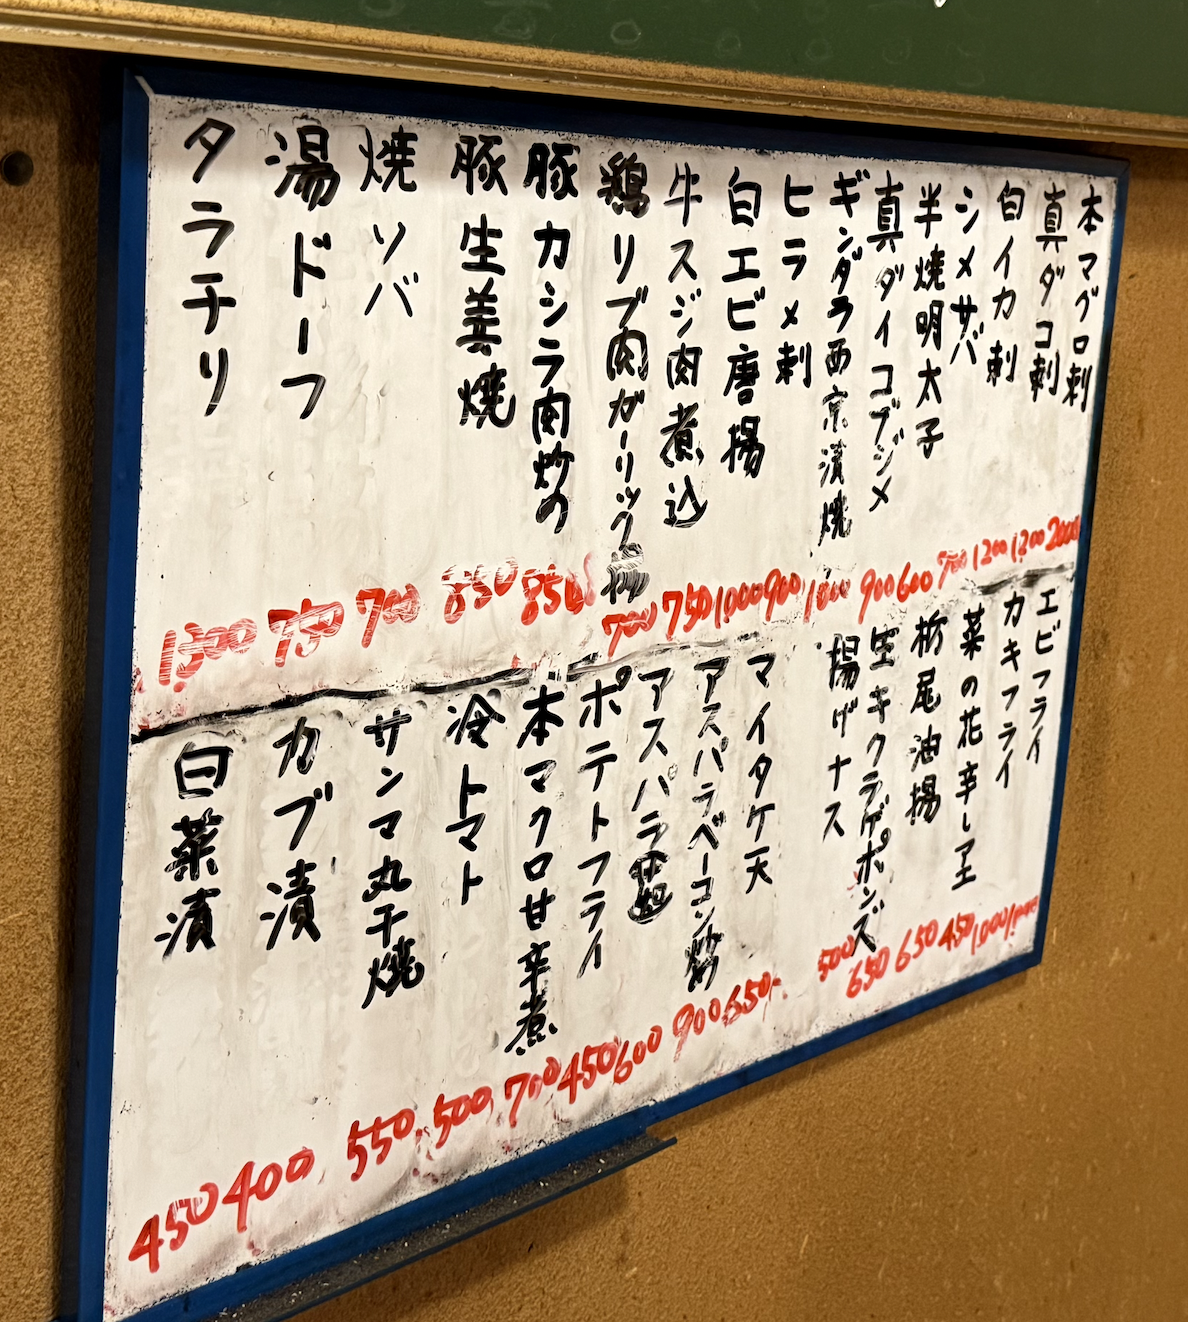 本マグロ刺 2000
真ダコ刺 1200
白イカ刺 1200
シメサバ 700
半焼明太子 600
真ダイコブジメ 900
ギンダラ西京漬焼 1000
ヒラメ刺 900
白エビ唐揚 1000
牛スジ肉煮込 750
鶏リブ肉ガーリック揚 700
豚カシラ肉炒め 850
豚生姜焼 850
焼ソバ 700
湯ドーフ 750
タラチリ 1300
エビフライ
カキフライ 1000
菜の花辛し和え 450
栃尾油揚 650
生キクラゲポンズ 650
揚げナス 500
マイタケ天 650
アスパラベーコン炒 900
アスパラ 600
ポテトフライ 450
本マグロ甘辛煮 700
冷トマト 500
サンマ丸干焼 550
カブ漬 400
白菜漬 450